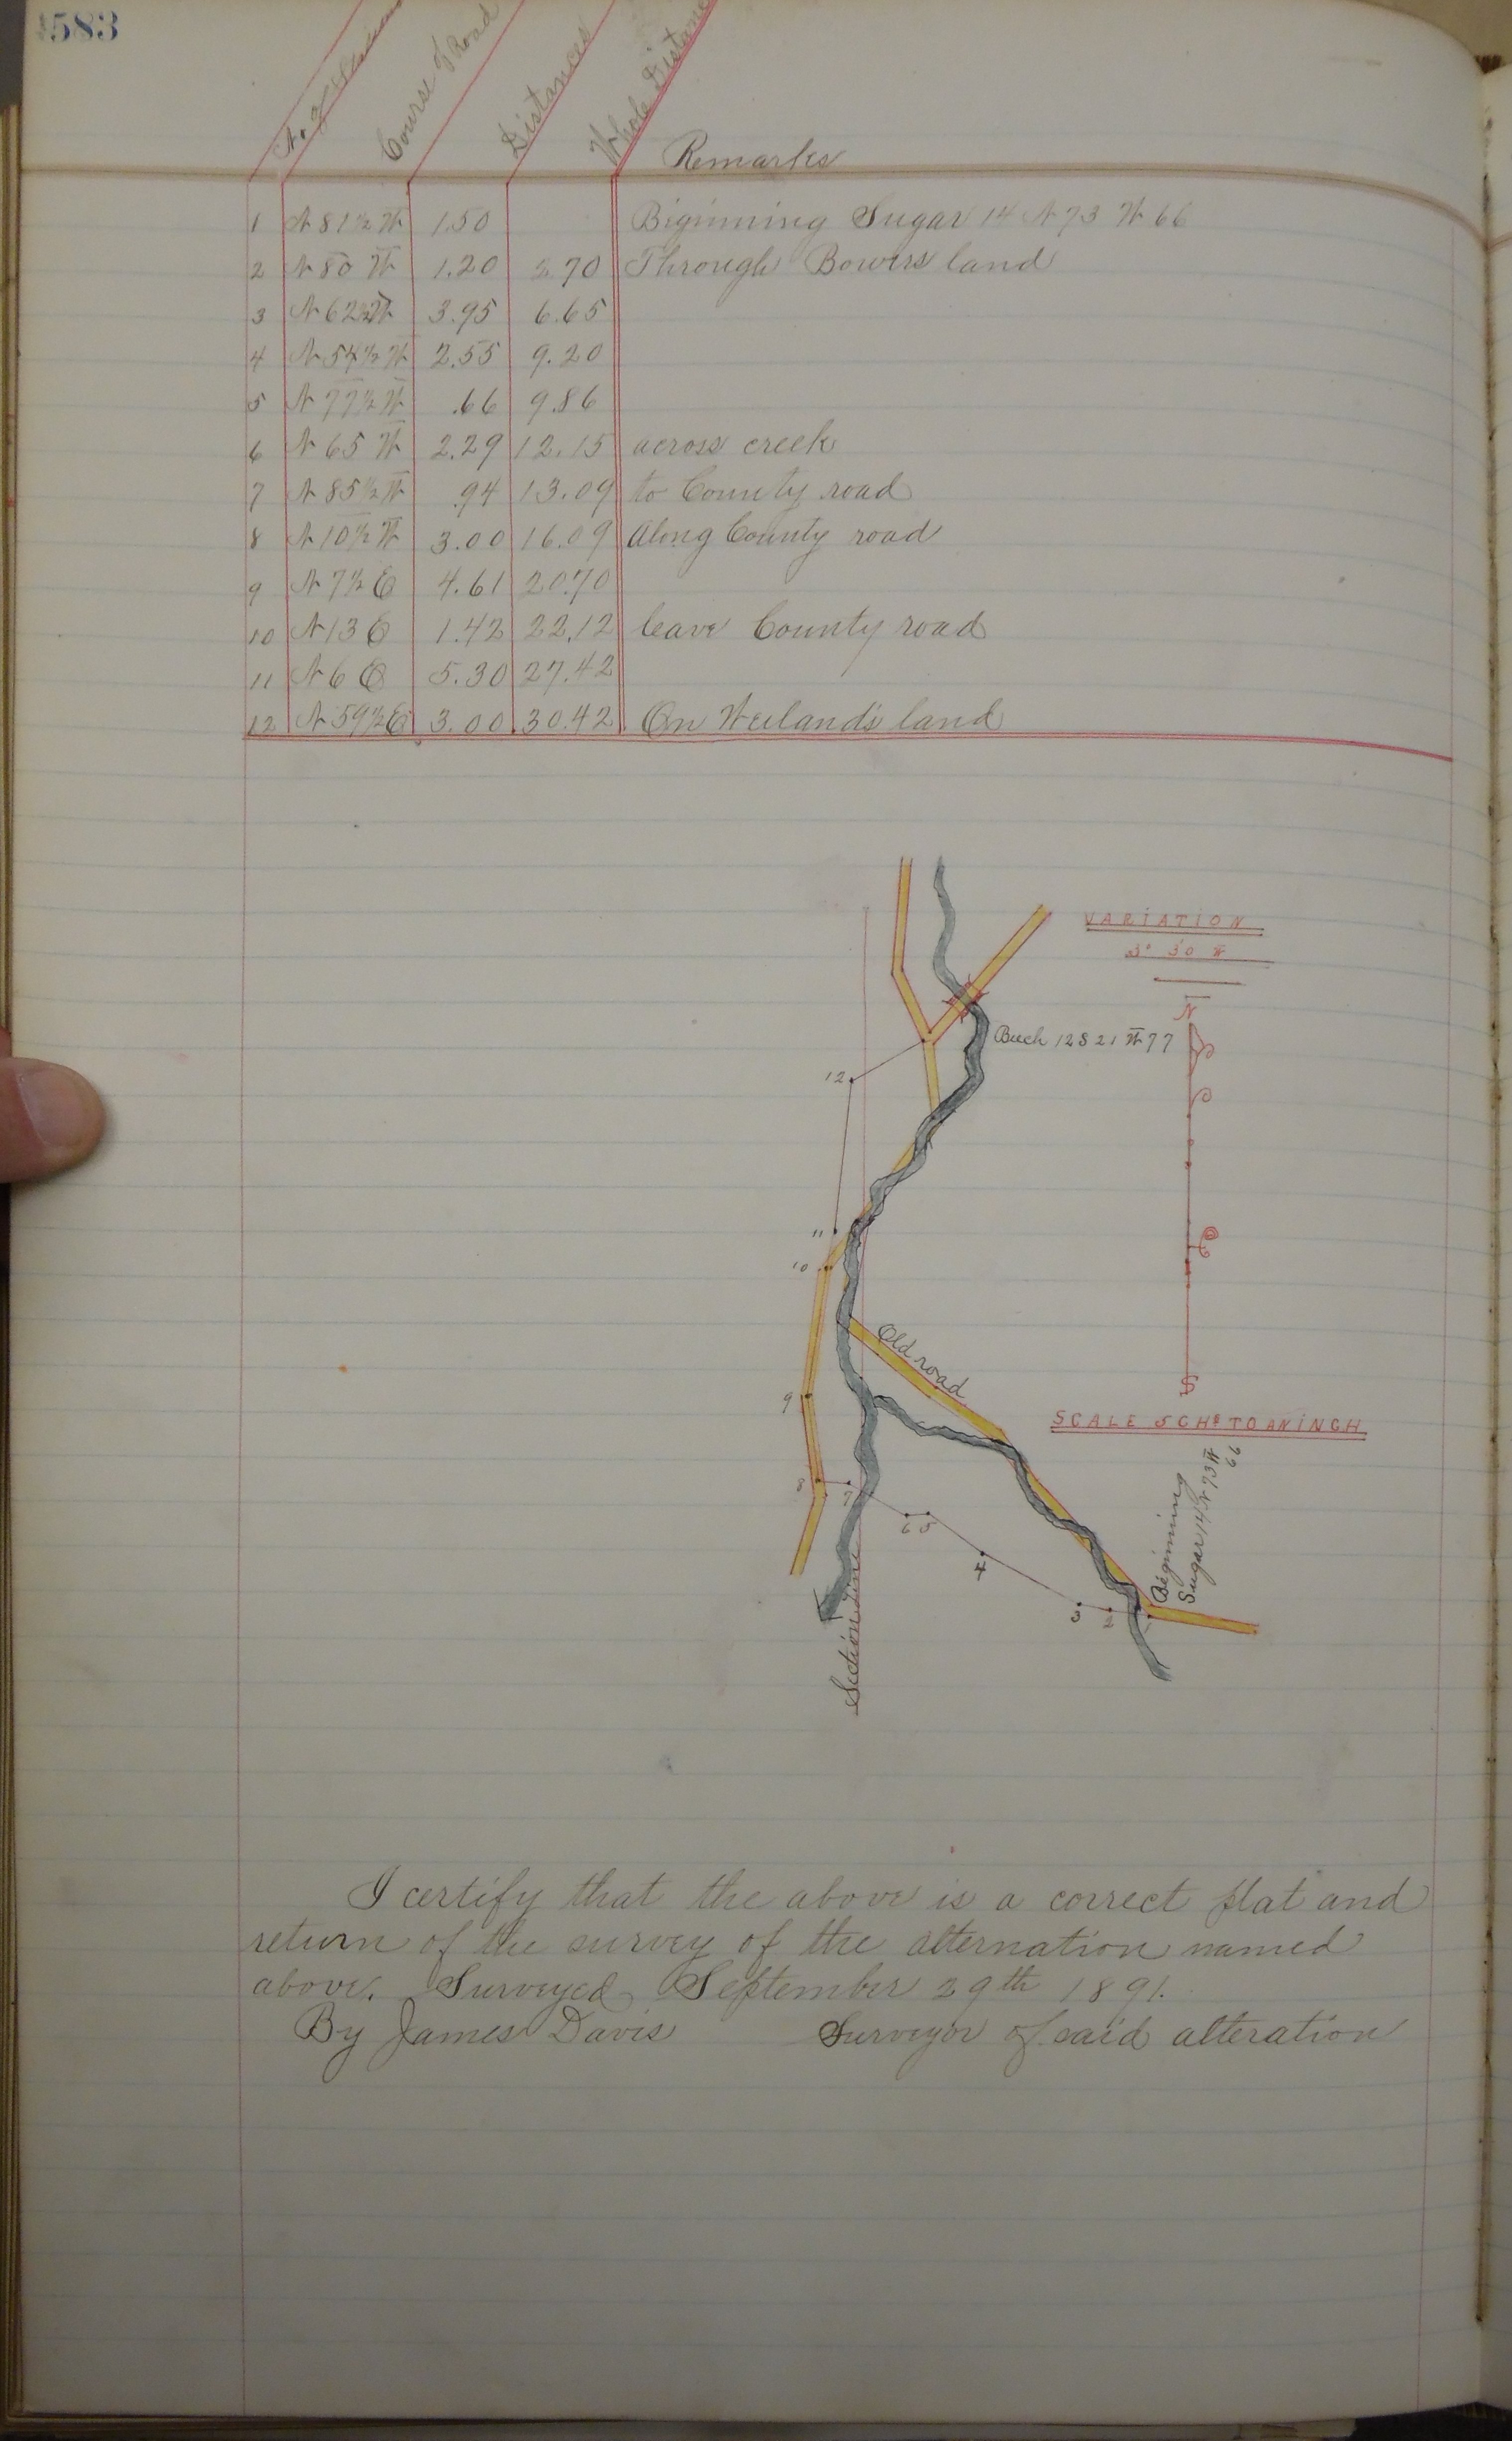 583
No. of Stations Course of Road Distances Whole Distance Remarks
1 N 81½ W 1.50 Biginning Sugar 14 N 73 W 66
2 N 80 W 1.20 2.70 Through Bowers land
3 N 62½ W 3.95 6.65
4 N 54½ W 2.55 9.20
5 N 77½ W .66 9.86
6 N 65 W 2.29 12.15 across creek
7 N 85½ W .94 13.09 to County road
8 N 10½ W 3.00 16.09 Along County road
9 N 7½ E 4.61 20.70
10 N 13 E 1.42 22.12 leave County road
11 N 6 E 5.30 27.42
12 N 59½ E 3.00 30.42 On Weilands land
VARIATION
3° 30 W
N
Beech 12 S 21 W 77
12
11
10
Old road
9
S
SCALE 5 CHS TO AN INCH
8
7
6 5
4
3
2
Beginning
Sugar 14 N 73 W
66
Section Line
I certify that the above is a correct plat and
return of the survey of the alternation named
above. Surveyed September 29th 1891.
By James Davis Surveyor of said alteration